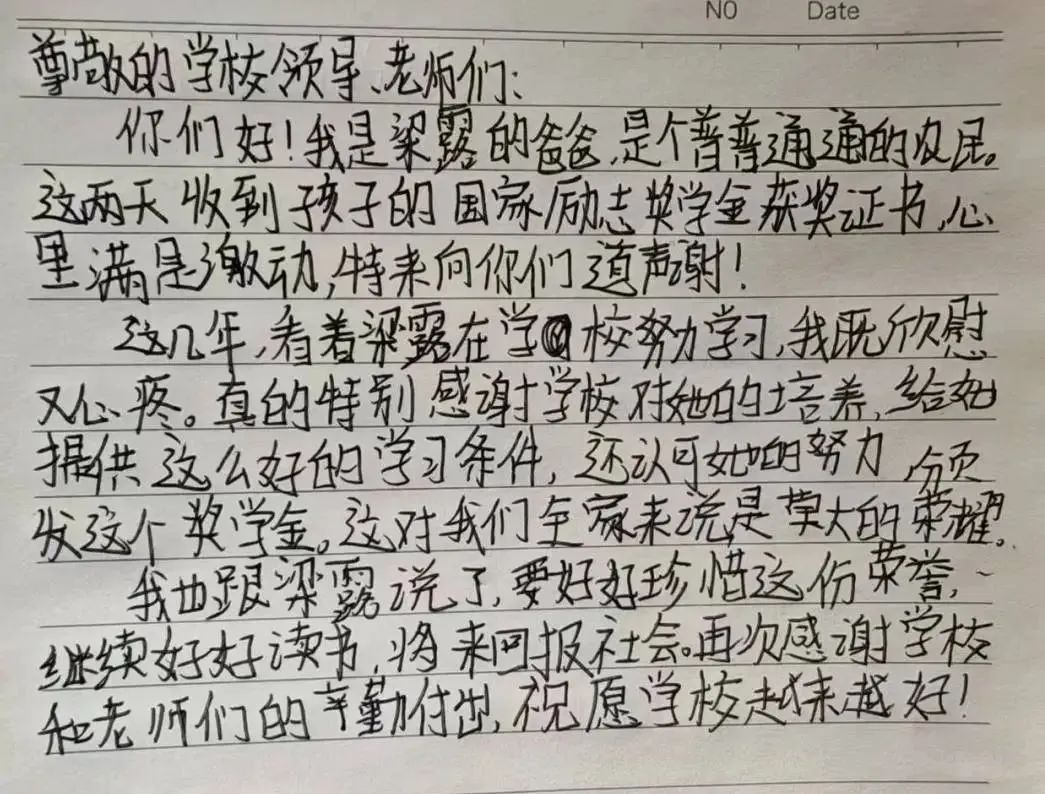 NO Date
尊敬的学校领导、老师们:
你们好!我是梁露的爸爸,是个普普通通的农民。
这两天收到孩子的国家励志奖学金获奖证书,心
里满是激动,特来向你们道声谢!
这几年,看着梁露在学校努力学习,我既欣慰
又心疼。真的特别感谢学校对她的培养,给她
提供这么好的学习条件,还认可她的努力,颁
发这个奖学金。这对我们全家来说是莫大的荣耀。
我也跟梁露说了,要好好珍惜这份荣誉,
继续好好读书,将来回报社会。再次感谢学校
和老师们的辛勤付出,祝愿学校越来越好!